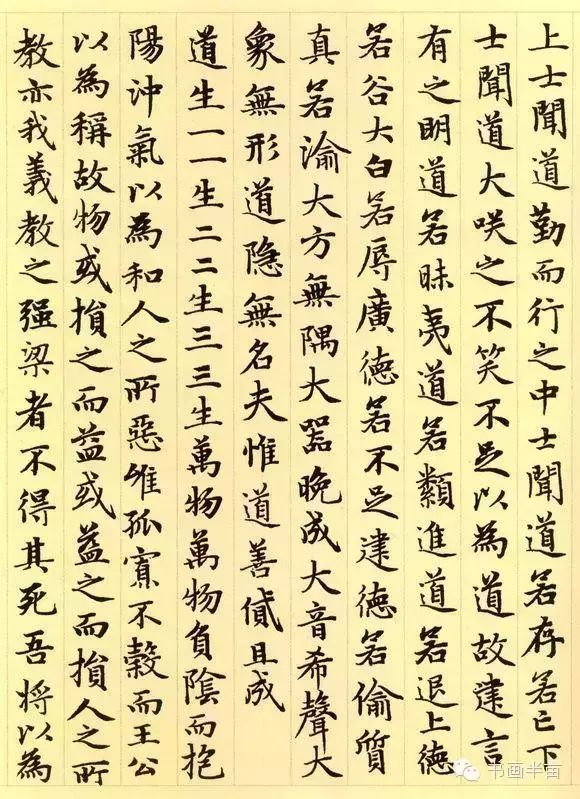 上士聞道勤而行之中士聞道若存若亡下
士聞道大咲之不笑不足以為道故建言
有之明道若昧夷道若類進道若退上德
若谷大白若辱廣德若不足建德若偷質
真若渝大方無隅大器晚成大音希聲大
象無形道隱無名夫惟道善貸且成
道生一一生二二生三三生萬物萬物負陰而抱
陽沖氣以為和人之所惡唯孤寡不穀而王公
以為稱故物或損之而益或益之而損人之所
教亦我義教之强梁者不得其死吾將以為
书画半亩